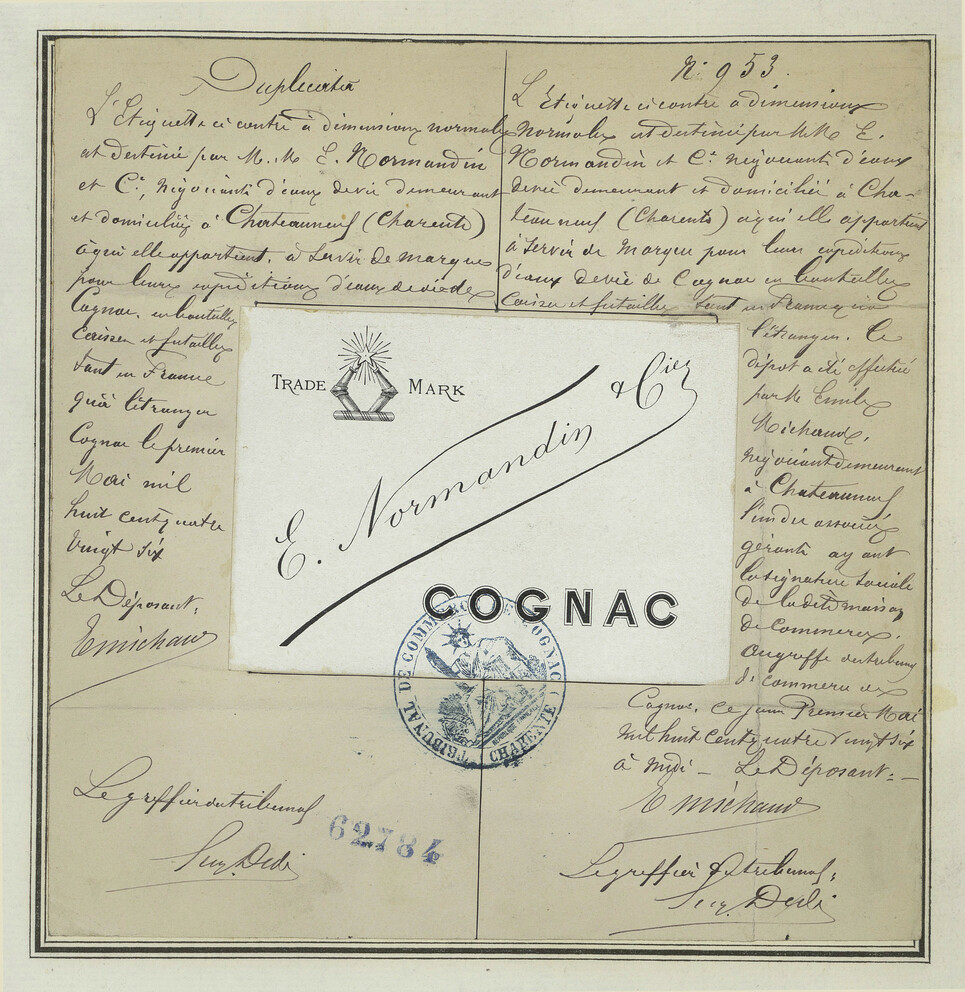 Duplicata
L'Etiquette ci contre à dimensions normales
est destinée par M. M. E. Normandin
et Cie, Négociants d'eaux de vie demeurant
et domiciliés à Chateauneuf (Charente)
à qui elle appartient, à Servir de marque
pour leurs expéditions d'eaux de vie de
Cognac, en bouteilles
Caisses et futailles
tant en France
qu'à l'étranger
Cognac le premier
Mai mil
huit cent quatre
vingt six
Le Déposant:
E michaud
Le greffier du tribunal
N° 953.
L'Etiquette ci contre à dimensions
Normales est destinée par M. M. E.
Normandin et Cie Négociants d'eaux
de vie demeurant et domiciliés à Cha-
teauneuf (Charente) à qui elle appartient
à Servir de Marque pour leurs expéditions
d'eaux de vie de Cognac en bouteilles
Caisses et futailles tant en France qu'à
l'étranger. Ce
dépot a été effectué
par M Emile
Michaud,
négociant demeurant
à Chateauneuf
l'un des associés
gérants ayant
la signature sociale
de la dite maison
de Commerce.
Au greffe du tribunal
de commerce de
Cognac, ce jour Premier Mai
mil huit Cent quatre vingt six
à Midi — Le Déposant: —
E michaud
Le greffier du tribunal:
TRADE MARK
E. Normandin & Cie
COGNAC
TRIBUNAL DE COMMERCE DE COGNAC (CHARENTE)
RÉPUBLIQUE FRANÇAISE
62784